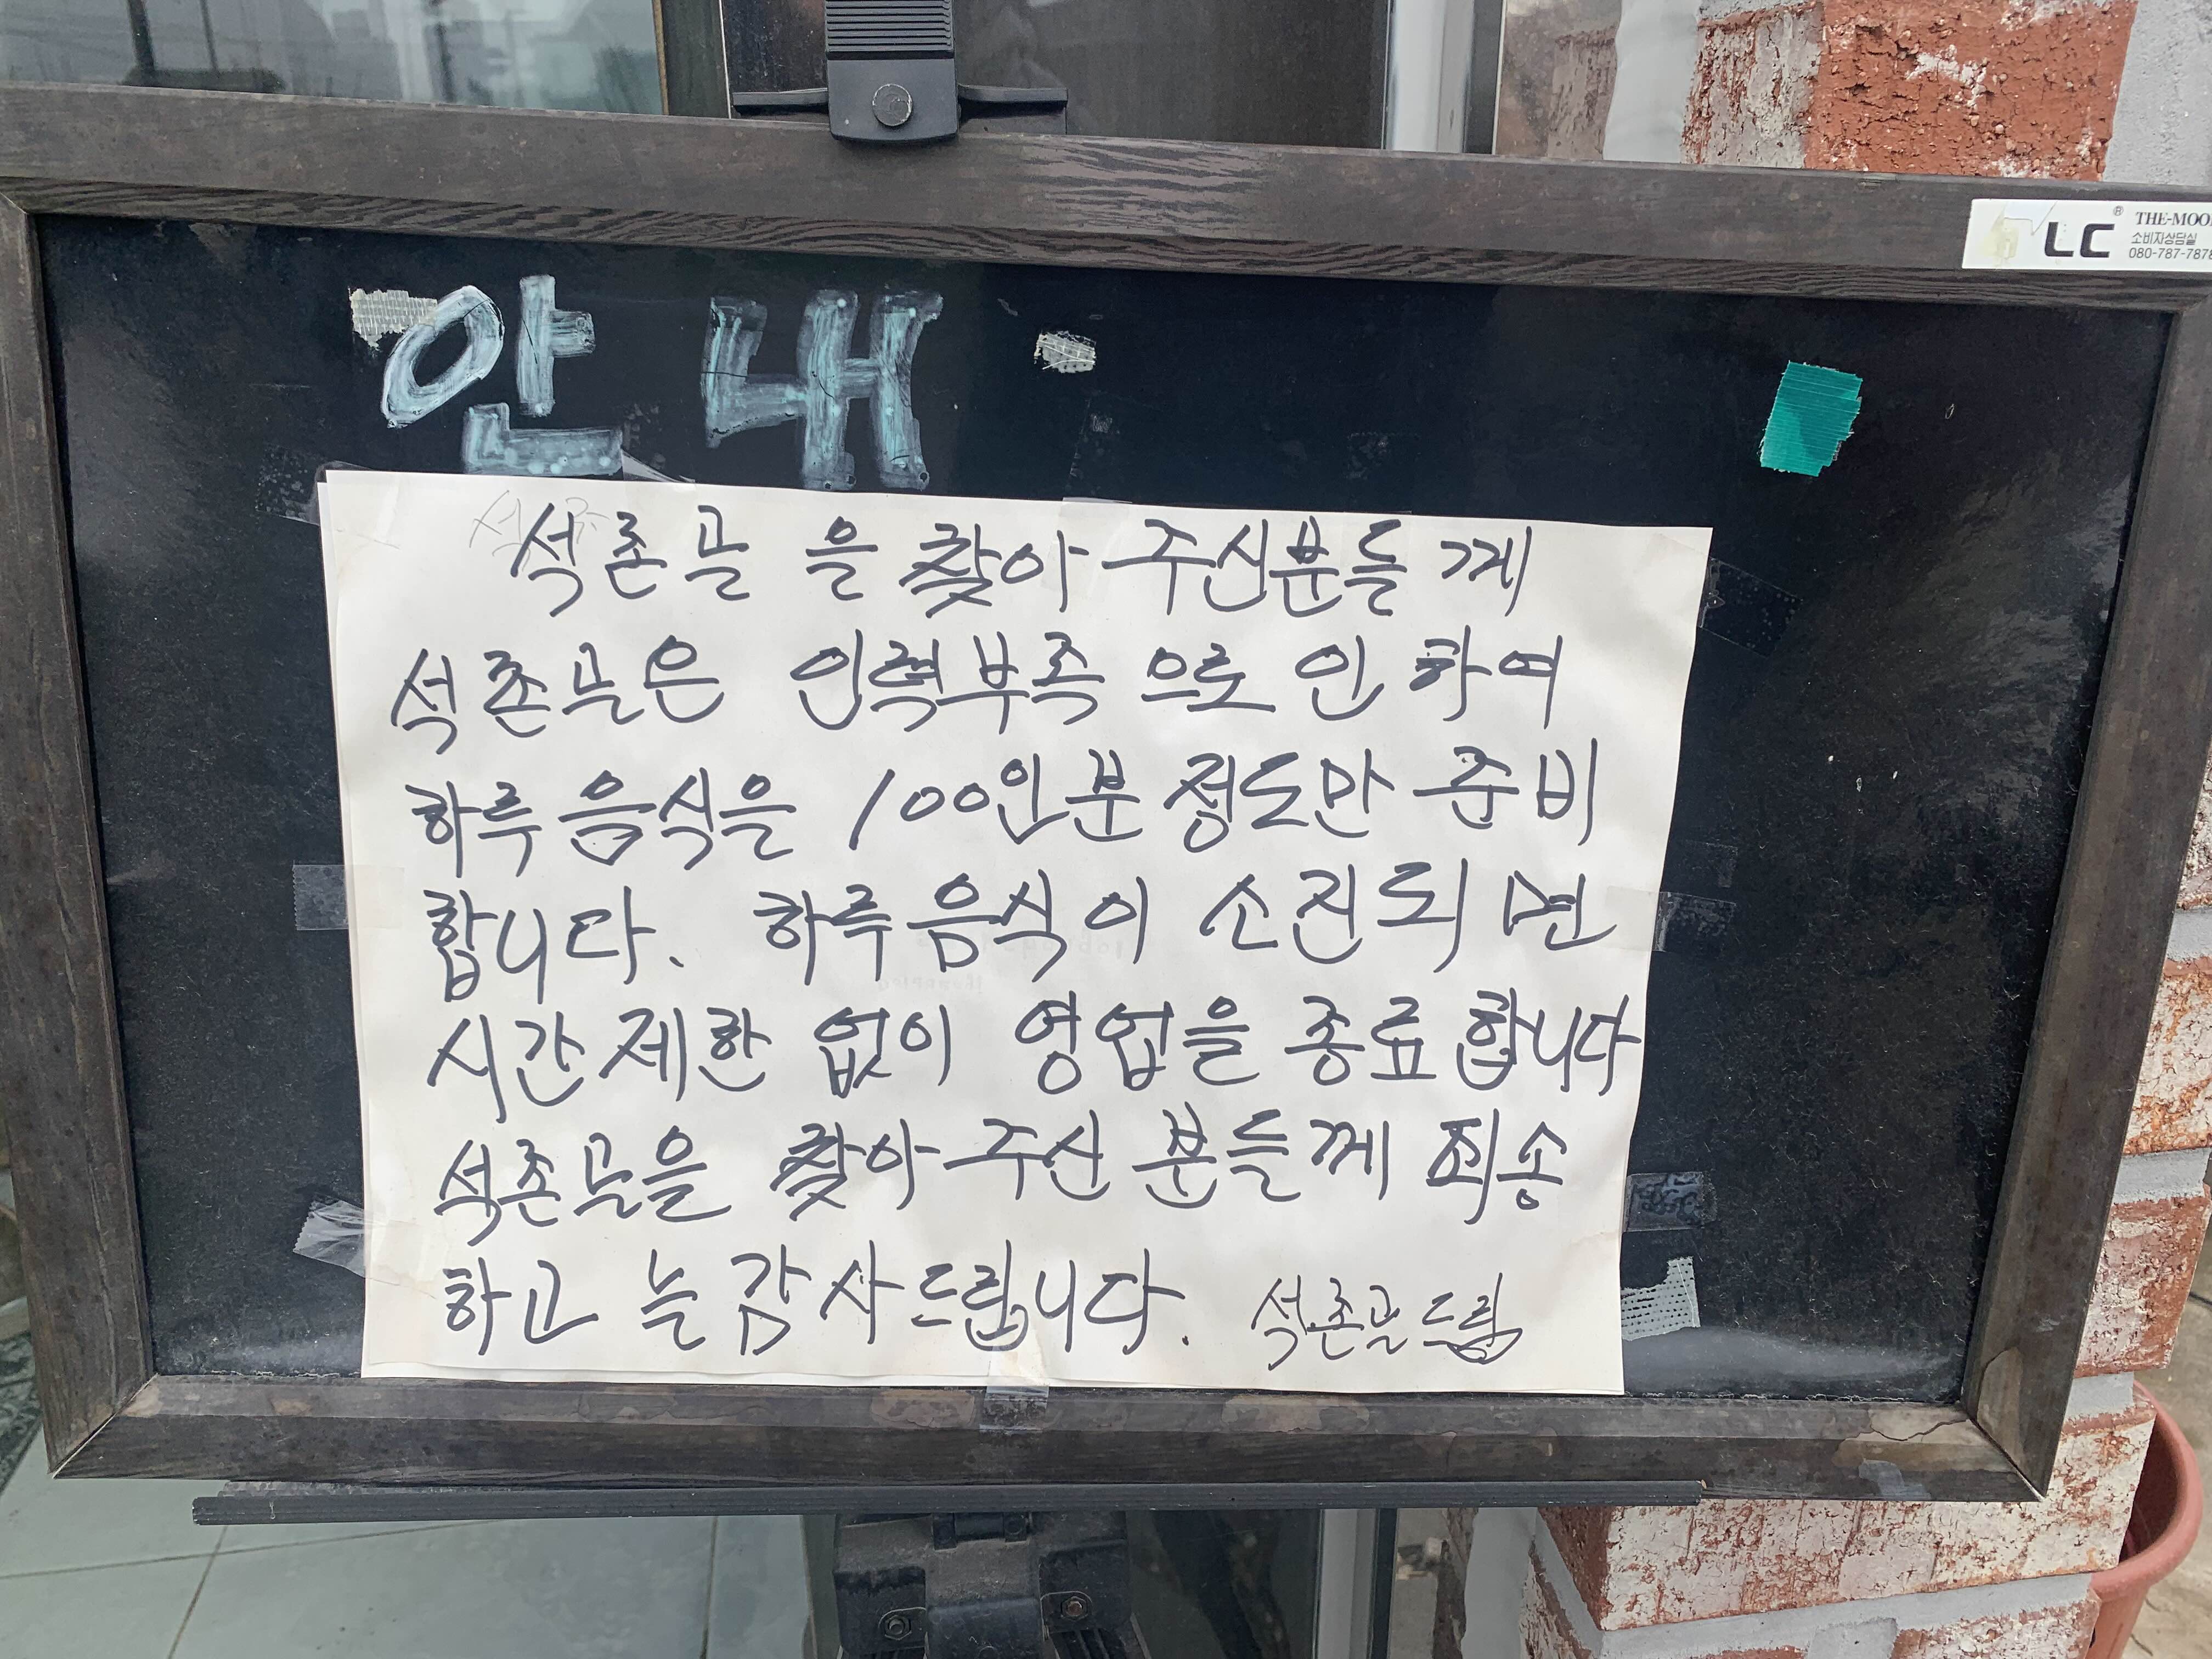 LC® THE-MOO
소비자상담실
080-787-7878
안내
석촌골 을 찾아 주신분들 께
석촌골은 인력부족 으로 인 하여
하루 음식을 100인분 정도만 준비
합니다. 하루 음식이 소진되 면
시간 제한 없이 영업을 종료 합니다
석촌골을 찾아 주신 분들께 죄송
하고 늘 감사드립니다. 석촌골 드림